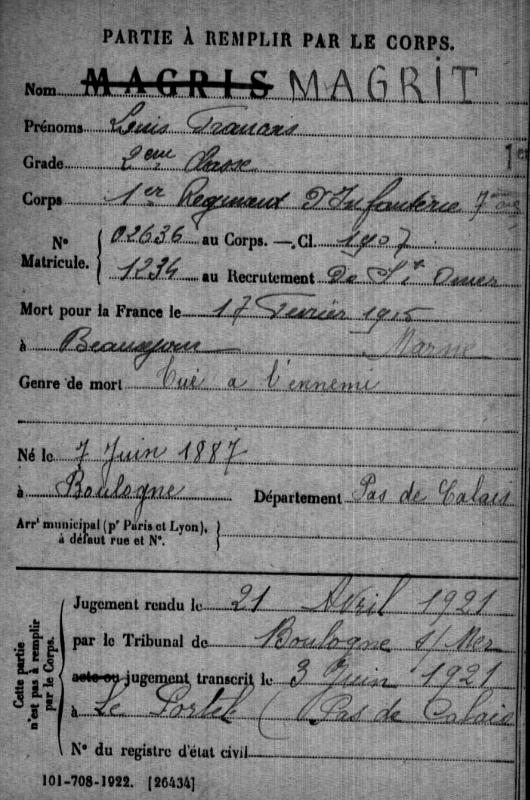 PARTIE À REMPLIR PAR LE CORPS.
Nom MAGRIS MAGRIT
Prénoms Louis François
Grade 2eme Classe
Corps 1er Regiment D'Infanterie 7
N° Matricule. { 02636 au Corps. — Cl. 1907
1234 au Recrutement De St Omer
Mort pour la France le 17 Fevrier 1915
à Beausejour Marne
Genre de mort Tué a l'ennemi
Né le 7 Juin 1887
à Boulogne Département Pas de Calais
Arrt municipal (pr Paris et Lyon), à défaut rue et N°. }
Cette partie n'est pas à remplir par le Corps.
Jugement rendu le 21 Avril 1921
par le Tribunal de Boulogne s/Mer
acte ou jugement transcrit le 3 Juin 1921
à Le Portel (Pas de Calais
N° du registre d'état civil
101-708-1922. [26434]